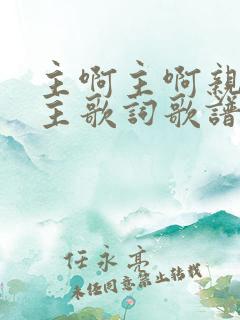 主啊主啊親
主歌詞歌譜
任永亮
未經同意禁止轉載